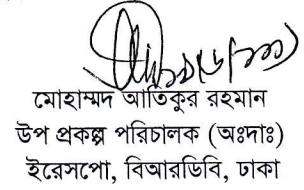 মোহাম্মদ আতিকুর রহমান
উপ প্রকল্প পরিচালক (অঃদাঃ)
ইরেসপো, বিআরডিবি, ঢাকা